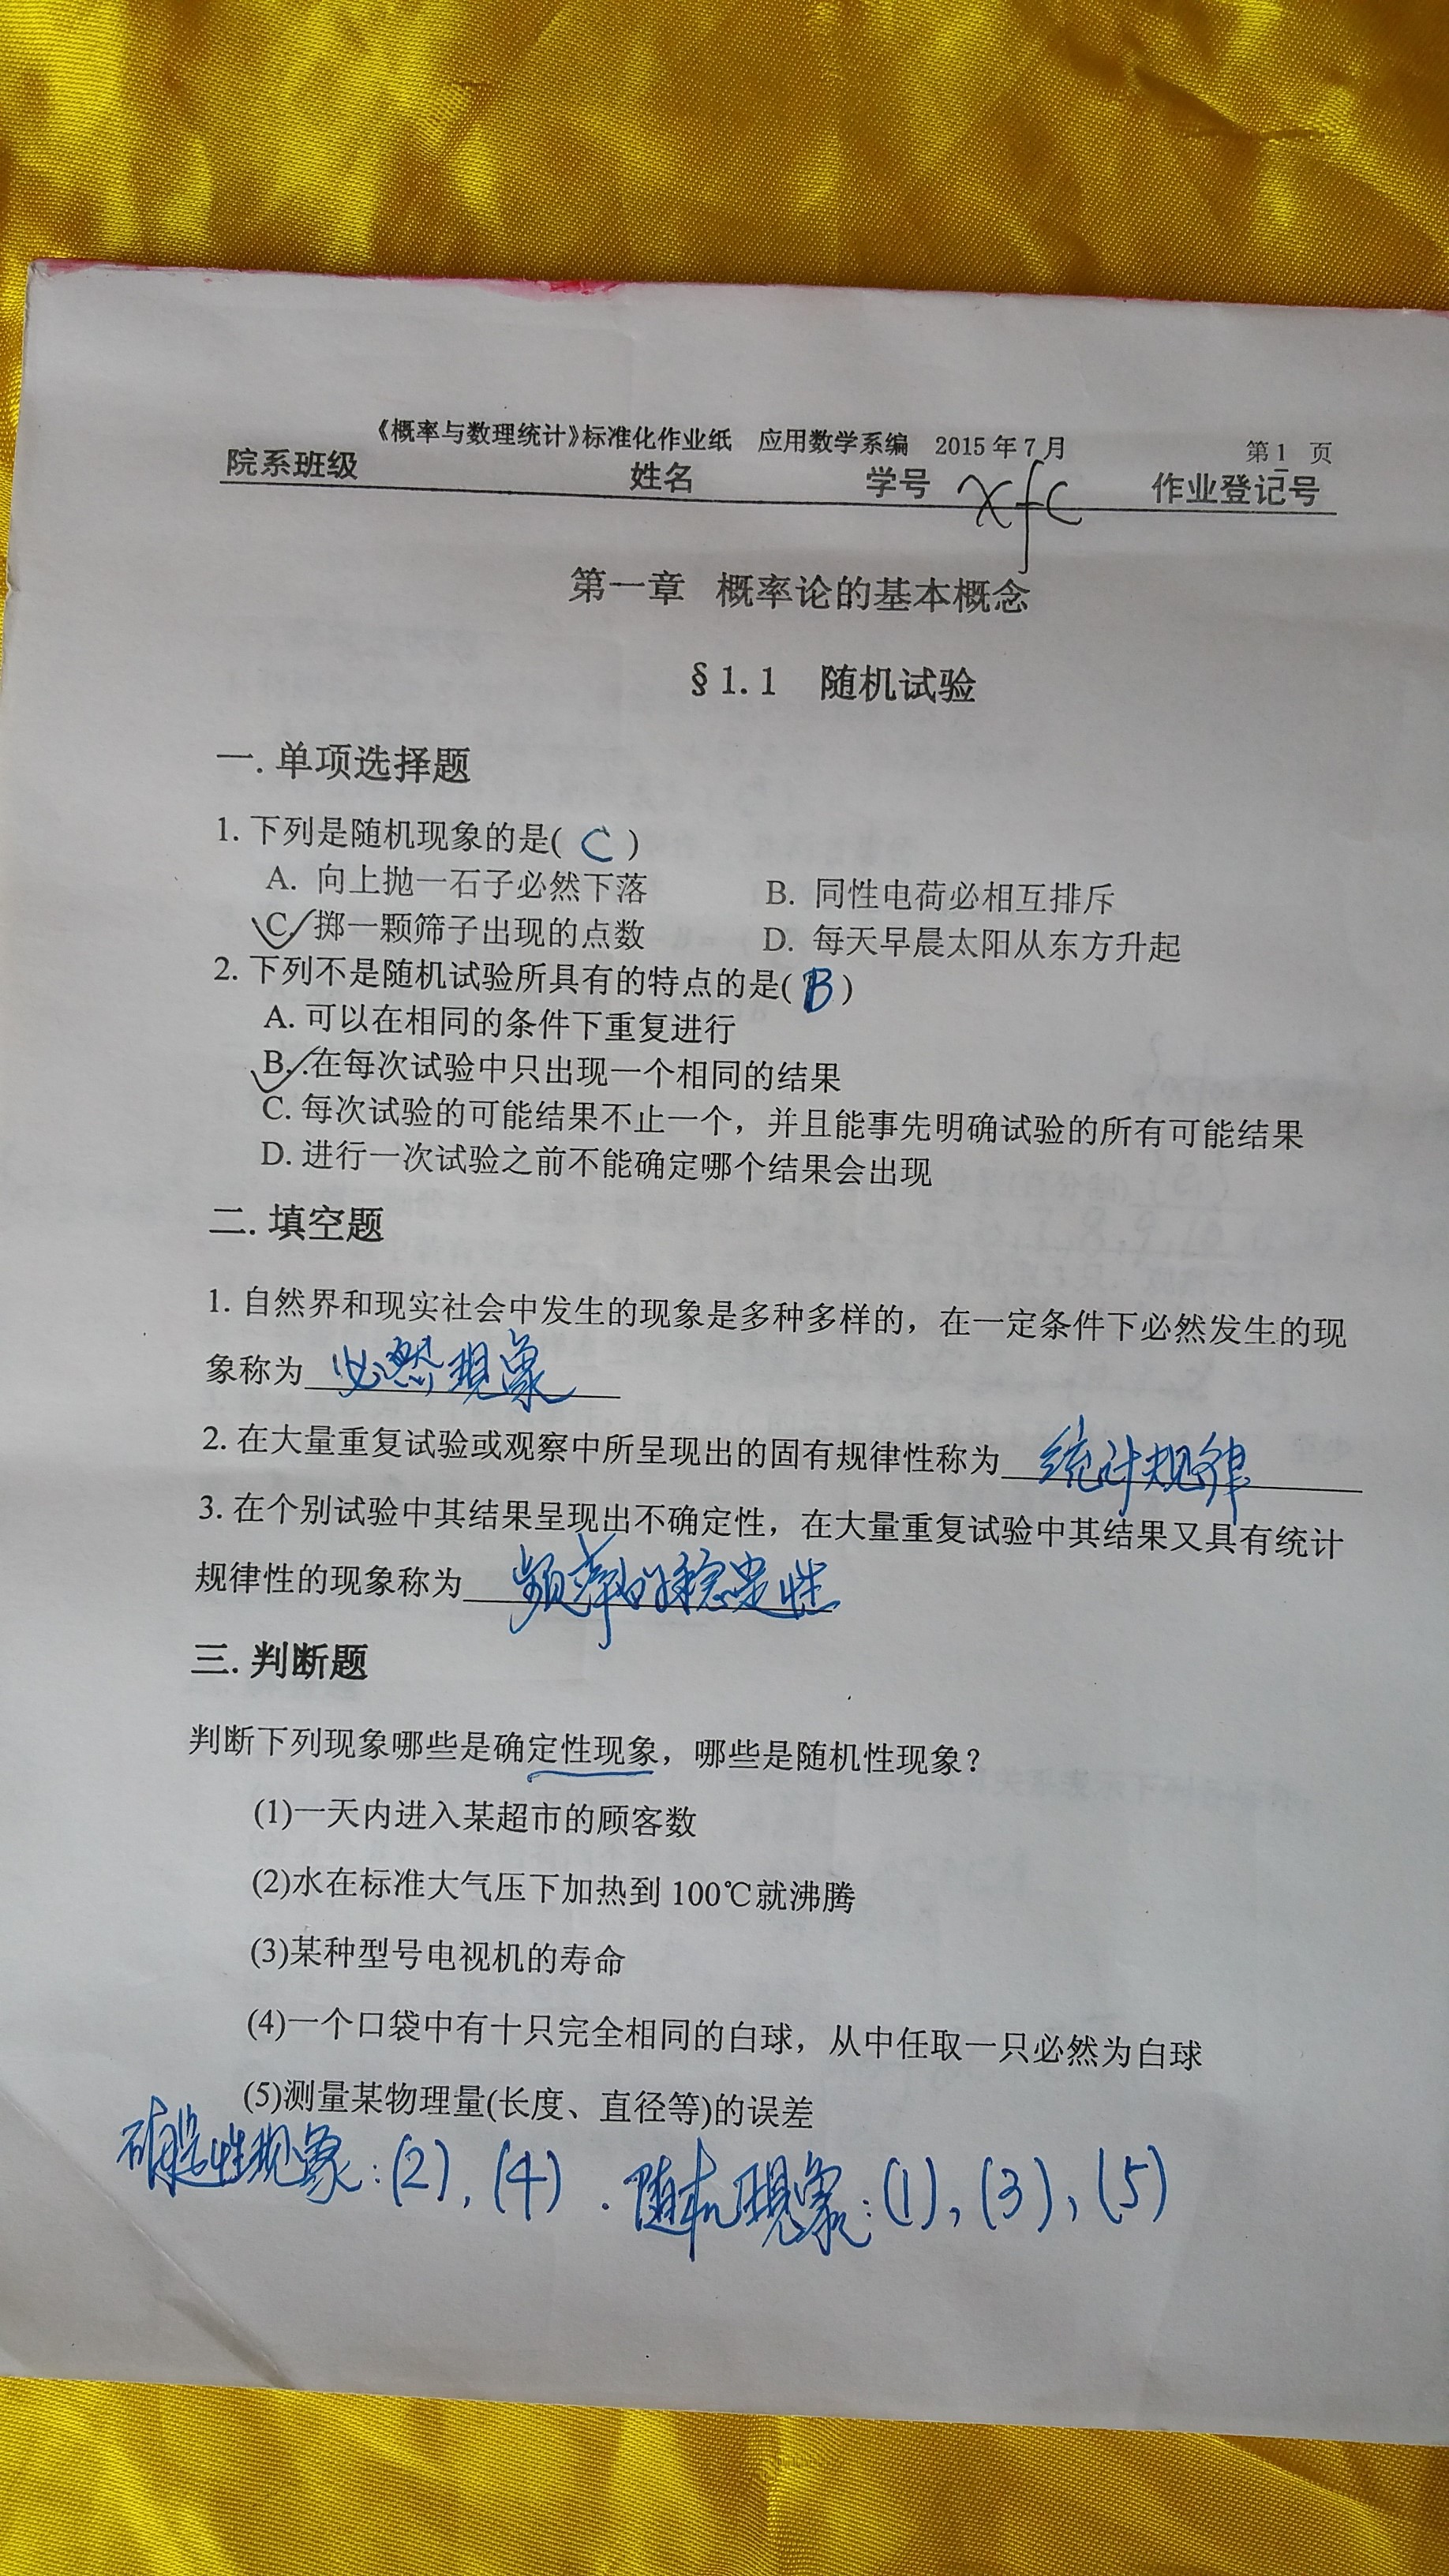 《概率与数理统计》标准化作业纸 应用数学系编 2015年7月 第1页
院系班级 姓名 学号 xfc 作业登记号
第一章 概率论的基本概念
§1.1 随机试验
一.单项选择题
1.下列是随机现象的是( C )
A. 向上抛一石子必然下落 B. 同性电荷必相互排斥
C. 掷一颗筛子出现的点数 D. 每天早晨太阳从东方升起
2.下列不是随机试验所具有的特点的是( B )
A.可以在相同的条件下重复进行
B. .在每次试验中只出现一个相同的结果
C.每次试验的可能结果不止一个，并且能事先明确试验的所有可能结果
D.进行一次试验之前不能确定哪个结果会出现
二.填空题
1.自然界和现实社会中发生的现象是多种多样的，在一定条件下必然发生的现
象称为 必然现象
2.在大量重复试验或观察中所呈现出的固有规律性称为 统计规律
3.在个别试验中其结果呈现出不确定性，在大量重复试验中其结果又具有统计
规律性的现象称为 频率的稳定性
三.判断题
判断下列现象哪些是确定性现象，哪些是随机性现象？
(1)一天内进入某超市的顾客数
(2)水在标准大气压下加热到100℃就沸腾
(3)某种型号电视机的寿命
(4)一个口袋中有十只完全相同的白球，从中任取一只必然为白球
(5)测量某物理量(长度、直径等)的误差
确定性现象:(2),(4) . 随机现象:(1),(3),(5)